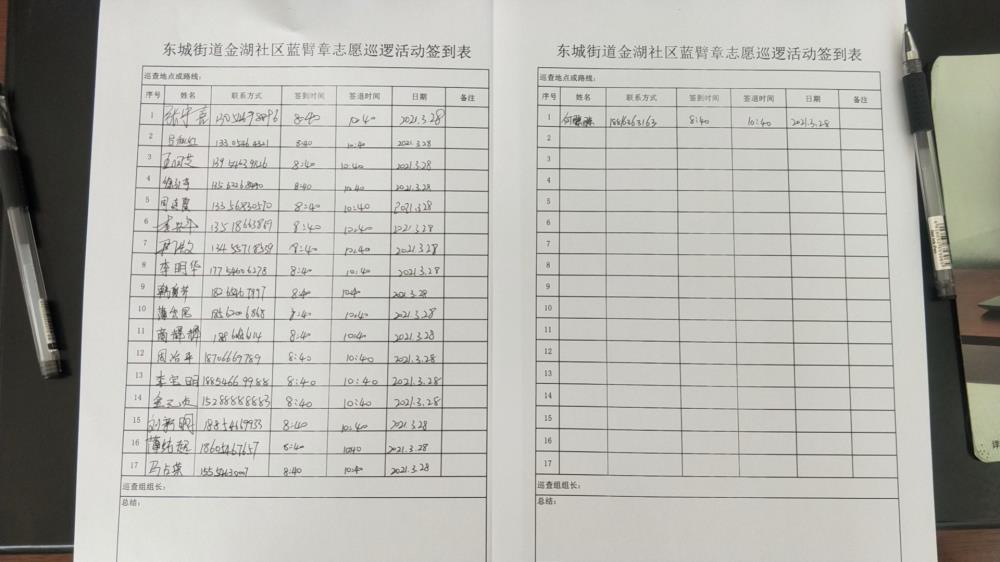 东城街道金湖社区蓝臂章志愿巡逻活动签到表
巡查地点或路线:
序号 姓名 联系方式 签到时间 签退时间 日期 备注
1 张守喜 8:40 10:40 2021.3.28
2 8:40 10:40 2021.3.28
3 8:40 10:40 2021.3.28
4 8:40 10:40 2021.3.28
5 周连霞 13356830570 8:40 10:40 2021.3.28
6 13518663869 8:40 10:40 2021.3.28
7 13455718559 8:40 10:40 2021.3.28
8 李明华 17754606278 8:40 10:40 2021.3.28
9 8:40 10:40 2021.3.28
10 18562006868 8:40 10:40 2021.3.28
11 8:40 10:40 2021.3.28
12 周治平 18706669789 8:40 10:40 2021.3.28
13 李宝明 18854669988 8:40 10:40 2021.3.28
14 15288888883 8:40 10:40 2021.3.28
15 刘新明 18854669933 8:40 10:40 2021.3.28
16 18605467657 8:40 10:40 2021.3.28
17 马占荣 8:40 10:40 2021.3.28
巡查组组长:
总结:
东城街道金湖社区蓝臂章志愿巡逻活动签到表
巡查地点或路线:
序号 姓名 联系方式 签到时间 签退时间 日期 备注
1 8:40 10:40 2021.3.28
2
3
4
5
6
7
8
9
10
11
12
13
14
15
16
17
巡查组组长:
总结:
详